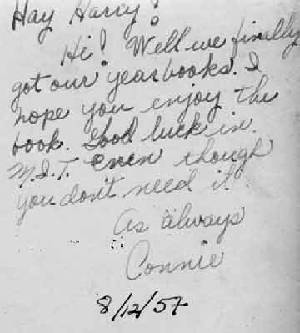 Hay Harry!
Hi! Well we finally
got our yearbooks. I
hope you enjoy the
book. Good luck in
M.I.T. even though
you don't need it
As always
Connie
8/12/57